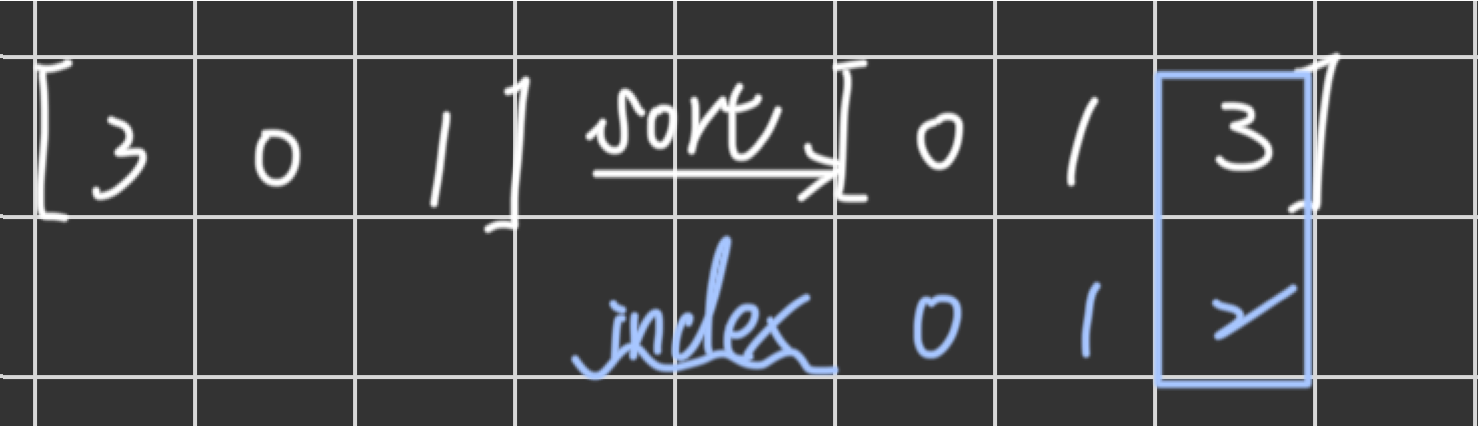 [3 0 1] sort [0 1 3]
index 0 1 2